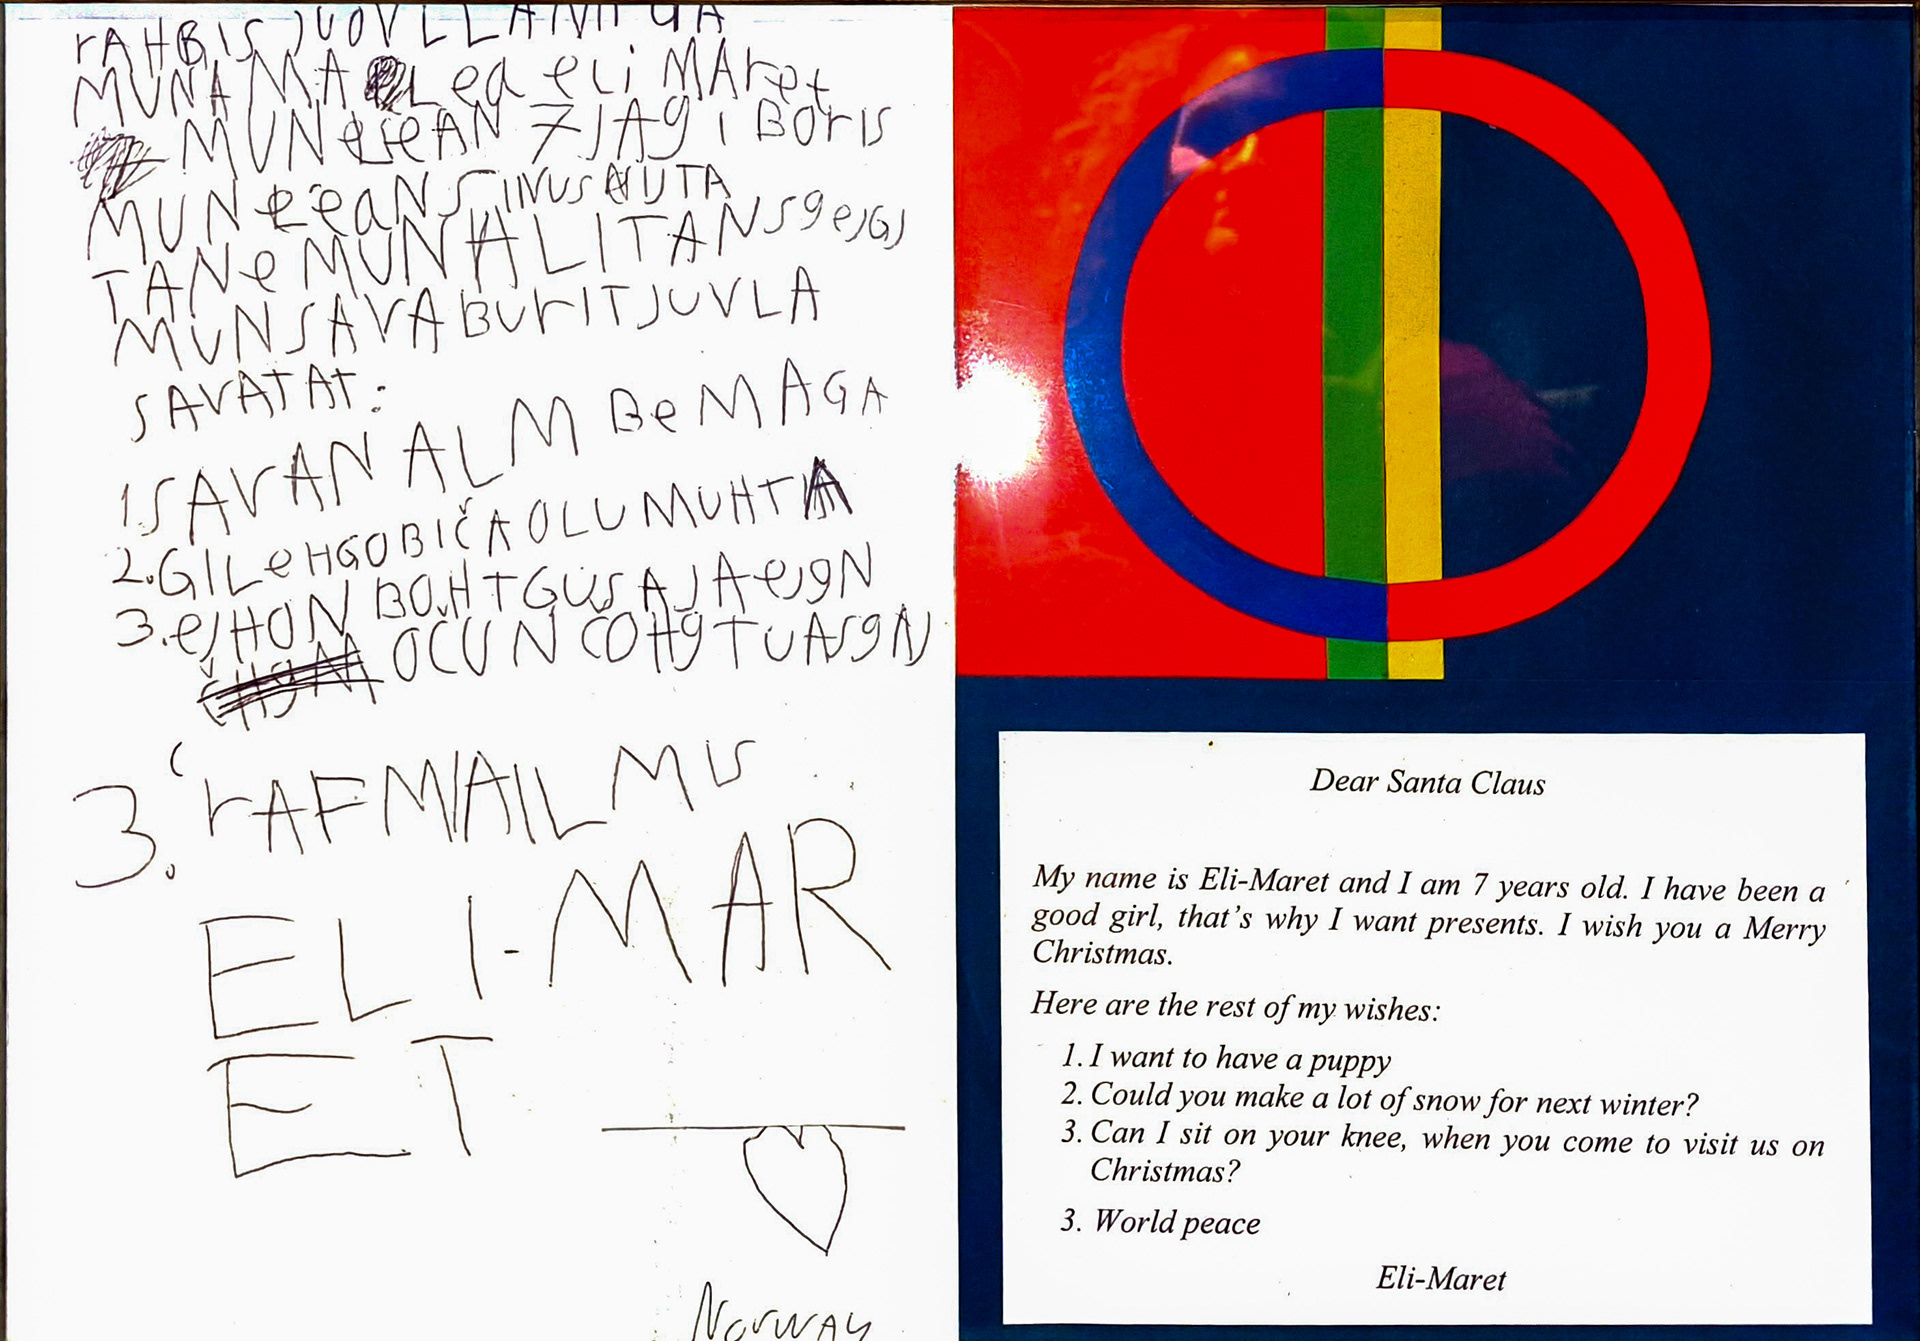 rAHBIS JUOVLLANIIGA
MUNA MA Lea eLi MAret
MUN LeAN 7 JAgi BOrIS
MUN LeaN SINUS NUTA
TANe MUN HALITAN SgeJGJ
MUN SAVA BUrIT JUVLA
SAVATAT:
1 SAVAN ALM BeMAGA
2. GILeHGO BIČA OLU MUHTA
3. eJHON BOHT GUSAJA eJgN
OČUN ČOHgT UASgNJ
3. rAFMAIL MIS
ELI-MAR
ET
Norway
Dear Santa Claus
My name is Eli-Maret and I am 7 years old. I have been a
good girl, that's why I want presents. I wish you a Merry
Christmas.
Here are the rest of my wishes:
1. I want to have a puppy
2. Could you make a lot of snow for next winter?
3. Can I sit on your knee, when you come to visit us on
Christmas?
3. World peace
Eli-Maret